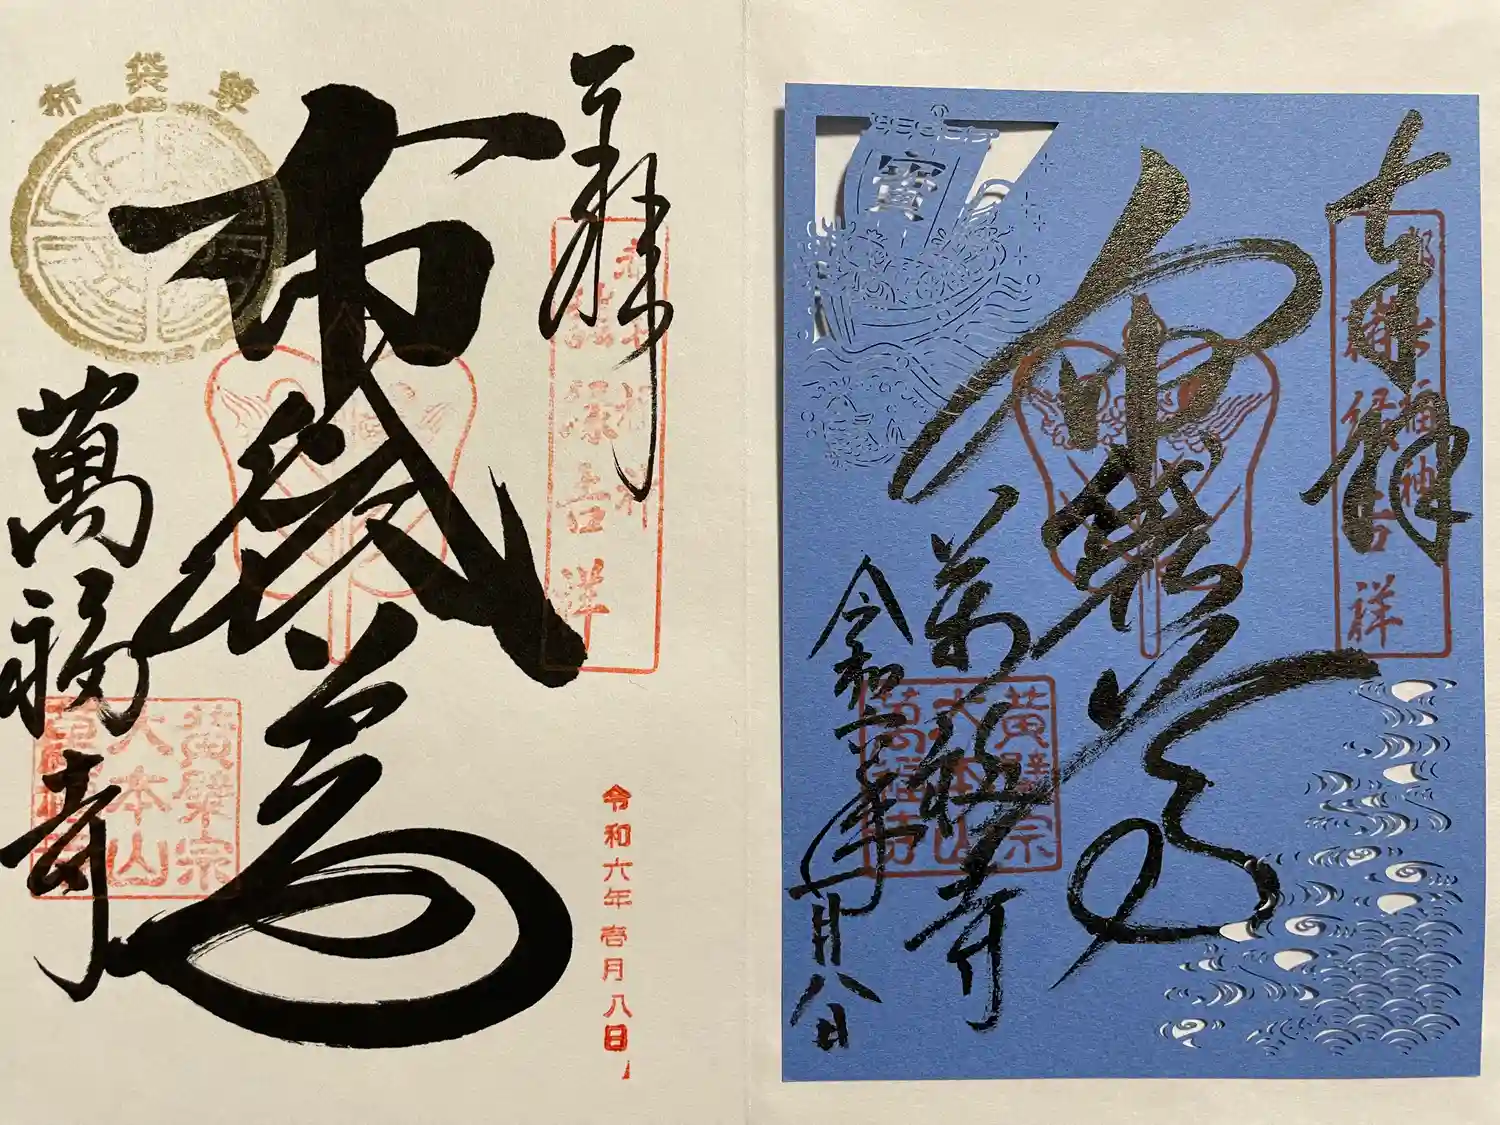 奉拝
都七福神
諸縁吉祥
布袋尊
布袋
萬福寺
黄檗宗
大本山
萬福寺
令和六年壱月八日
奉拝
都七福神
諸縁吉祥
布袋尊
寳
萬福寺
黄檗宗
大本山
萬福寺
令和六年一月八日